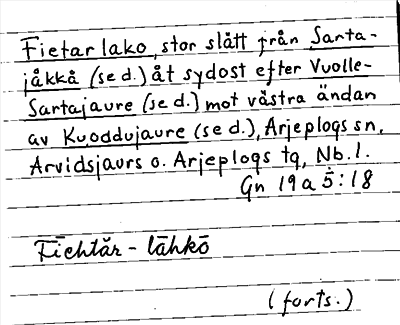 Fietar lako, stor slått från Sarta-
jåkkå (se d.) åt sydost efter Vuolle-
Sartajaure (se d.) mot västra ändan
av Kuoddujaure (se d.), Arjeplogs sn,
Arvidsjaurs o. Arjeplogs tg, Nb. l.
Gn 19 a 5:18
Fīehtăr - lāhkō
(forts.)